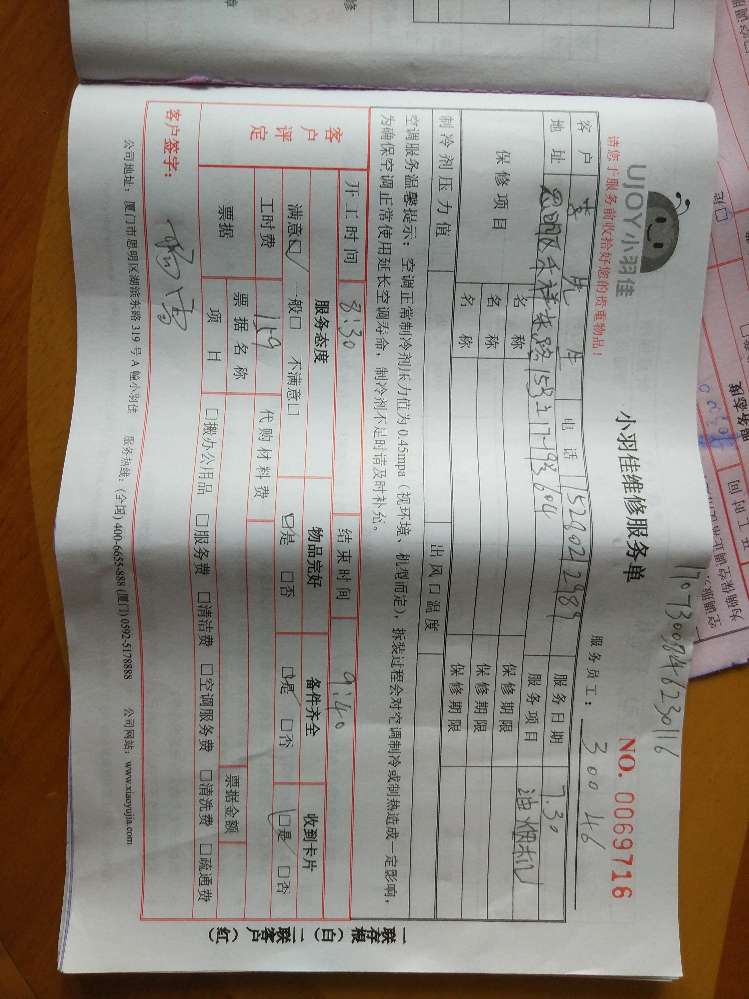 请您于服务前收拾好您的贵重物品!
UJOY小羽佳
小羽佳维修服务单
NO. 0069716
服务员工: 30046
客户 先生 电话 服务日期 7.30
地址 服务项目 油烟机
保修项目 名称 保修期限
名称 保修期限
名称 保修期限
制冷剂压力值 出风口温度
空调服务温馨提示:空调正常制冷剂压力值为0.45mpa(视环境、机型而定),拆装过程会对空调制冷或制热造成一定影响,
为确保空调正常使用延长空调寿命,制冷剂不足时请及时补充。
开工时间 8:30 结束时间 9:40
客户评定 服务态度 物品完好 备件齐全 收到卡片
满意□ 一般□ 不满意□ □是 □否 □是 □否 □是 □否
工时费 159 代购材料费
票据 票据名称 票据金额
项目 □搬办公用品 □服务费 □清洁费 □空调服务费 □清洗费 □疏通费
客户签字:
公司地址:厦门市思明区湖滨东路319号A幢小羽佳 服务热线:(全国)400-6655-888 (厦门)0592-5178888 公司网站:www.xiaoyujia.com
一联存根(白) 二联客户(红)